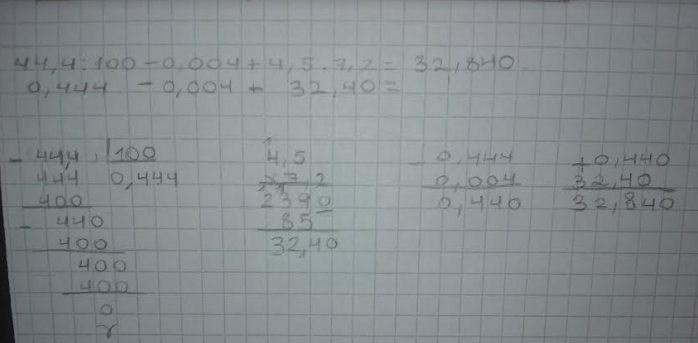 44,4:100-0,004+4,5.7,2= 32,840.
0,444 -0,004+ 32,40=
- 44,4 100
444 0,444
400
- 440
400
400
400
0
4,5
x7,2
2390
85
32,40
- 0,444
0,004
0,440
+0,440
32,40
32,840